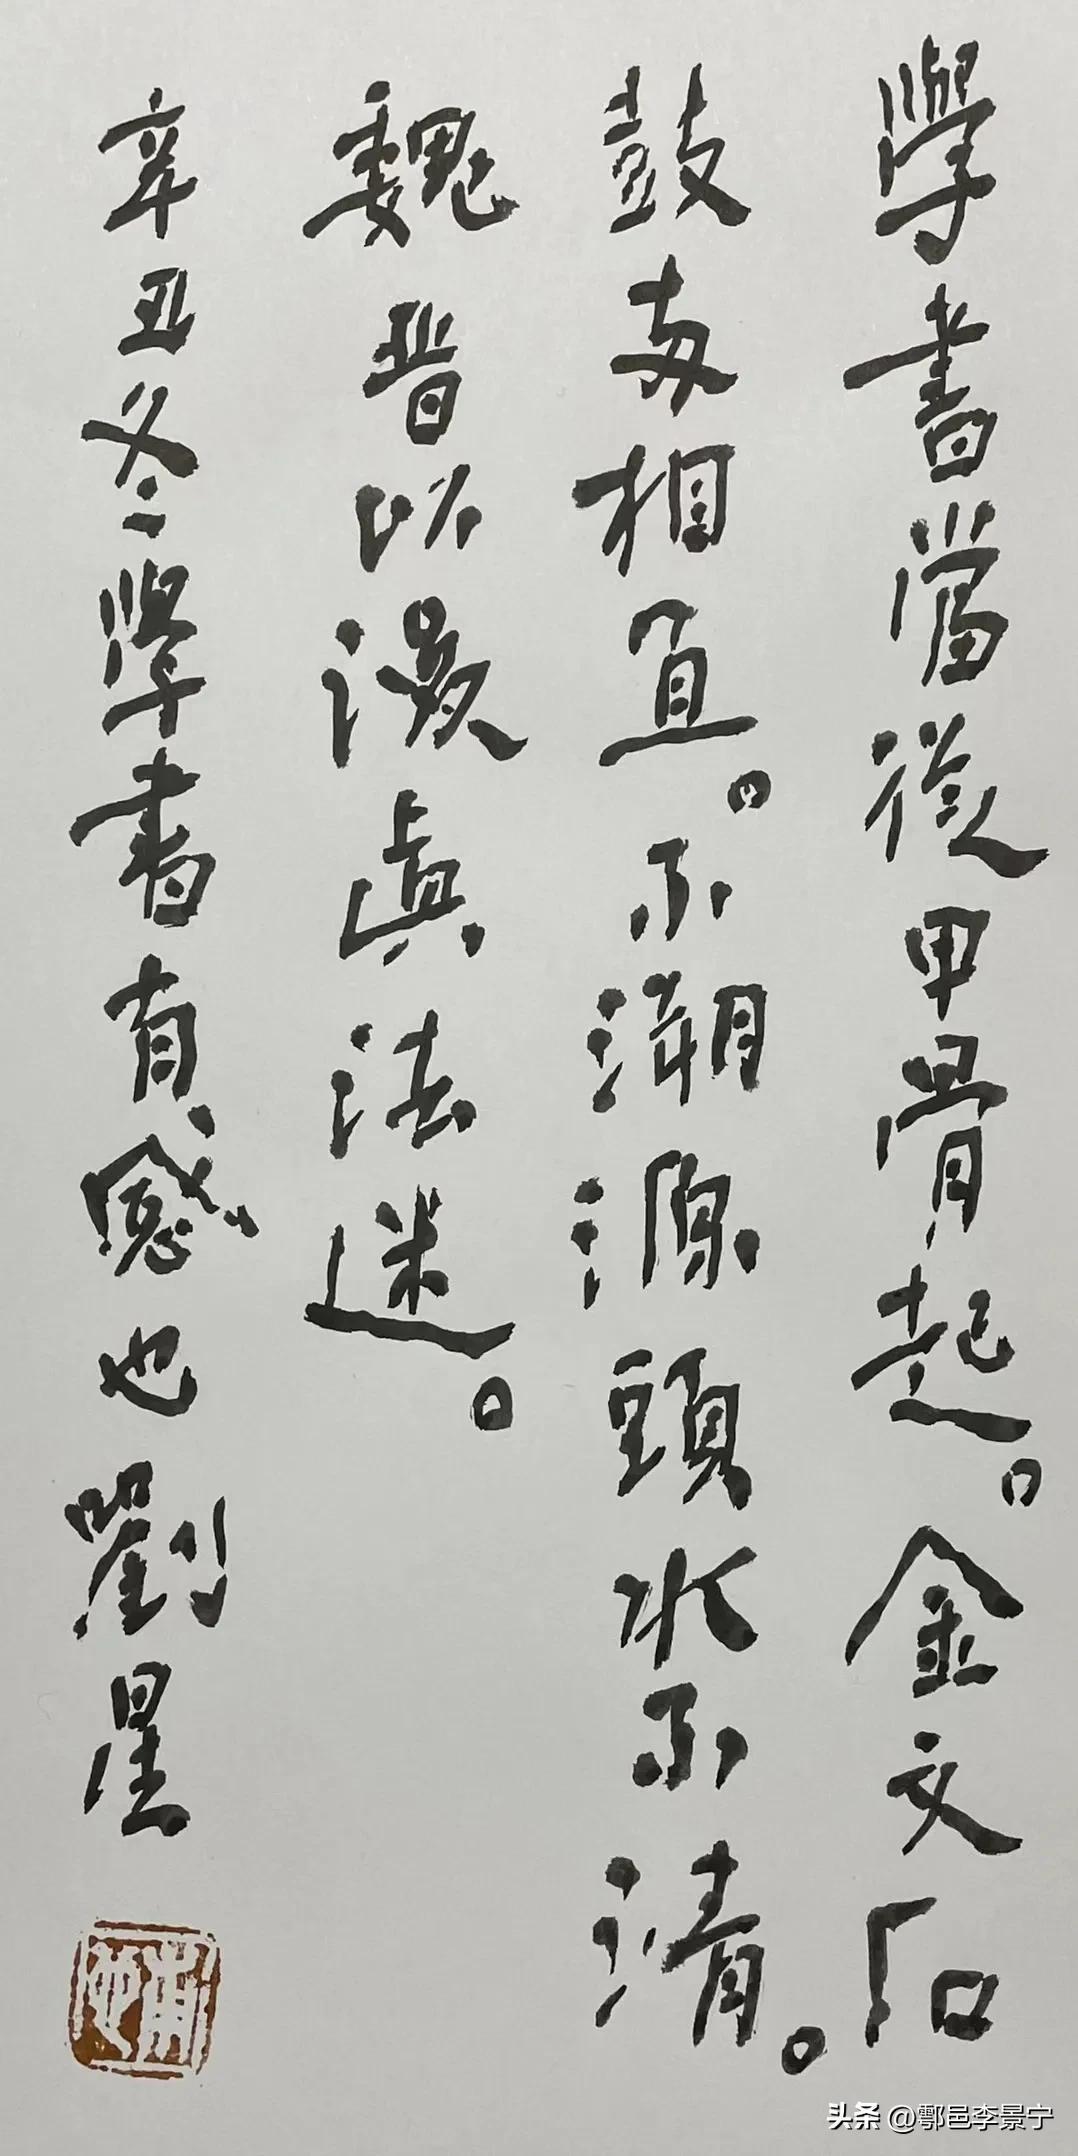 學書當從甲骨起。金文石
鼓两相宜。不溯源頭水不清。
魏晉以後眞法迷。
辛丑冬學書有感也 劉星
头条 @鄠邑李景宁